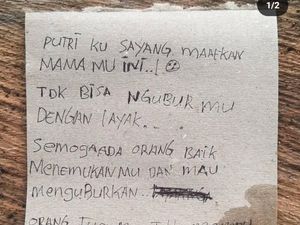 1/2
PUTRI KU SAYANG MAAFKAN
MAMA MU INI..!
TDK BISA NGUBUR MU
DENGAN LAYAK...
SEMOGA ADA ORANG BAIK
MENEMUKANMU DAN MAU
MENGUBURKAN
ORANG